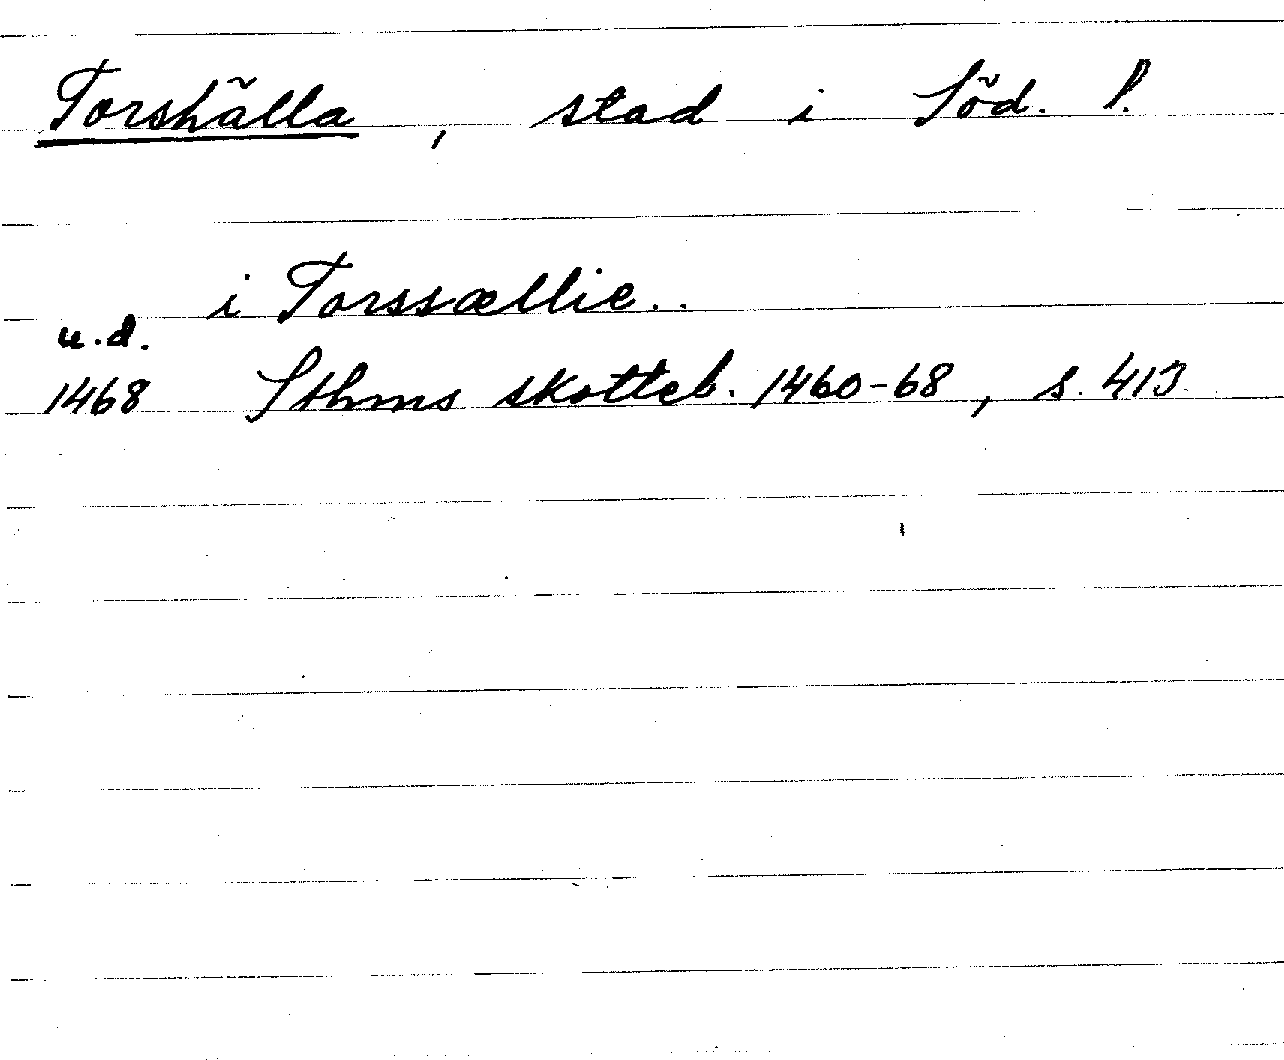 Torshälla, stad i Söd. l.
i Torssællie..
u.d.
1468 Sthms skotteb. 1460-68, s. 413